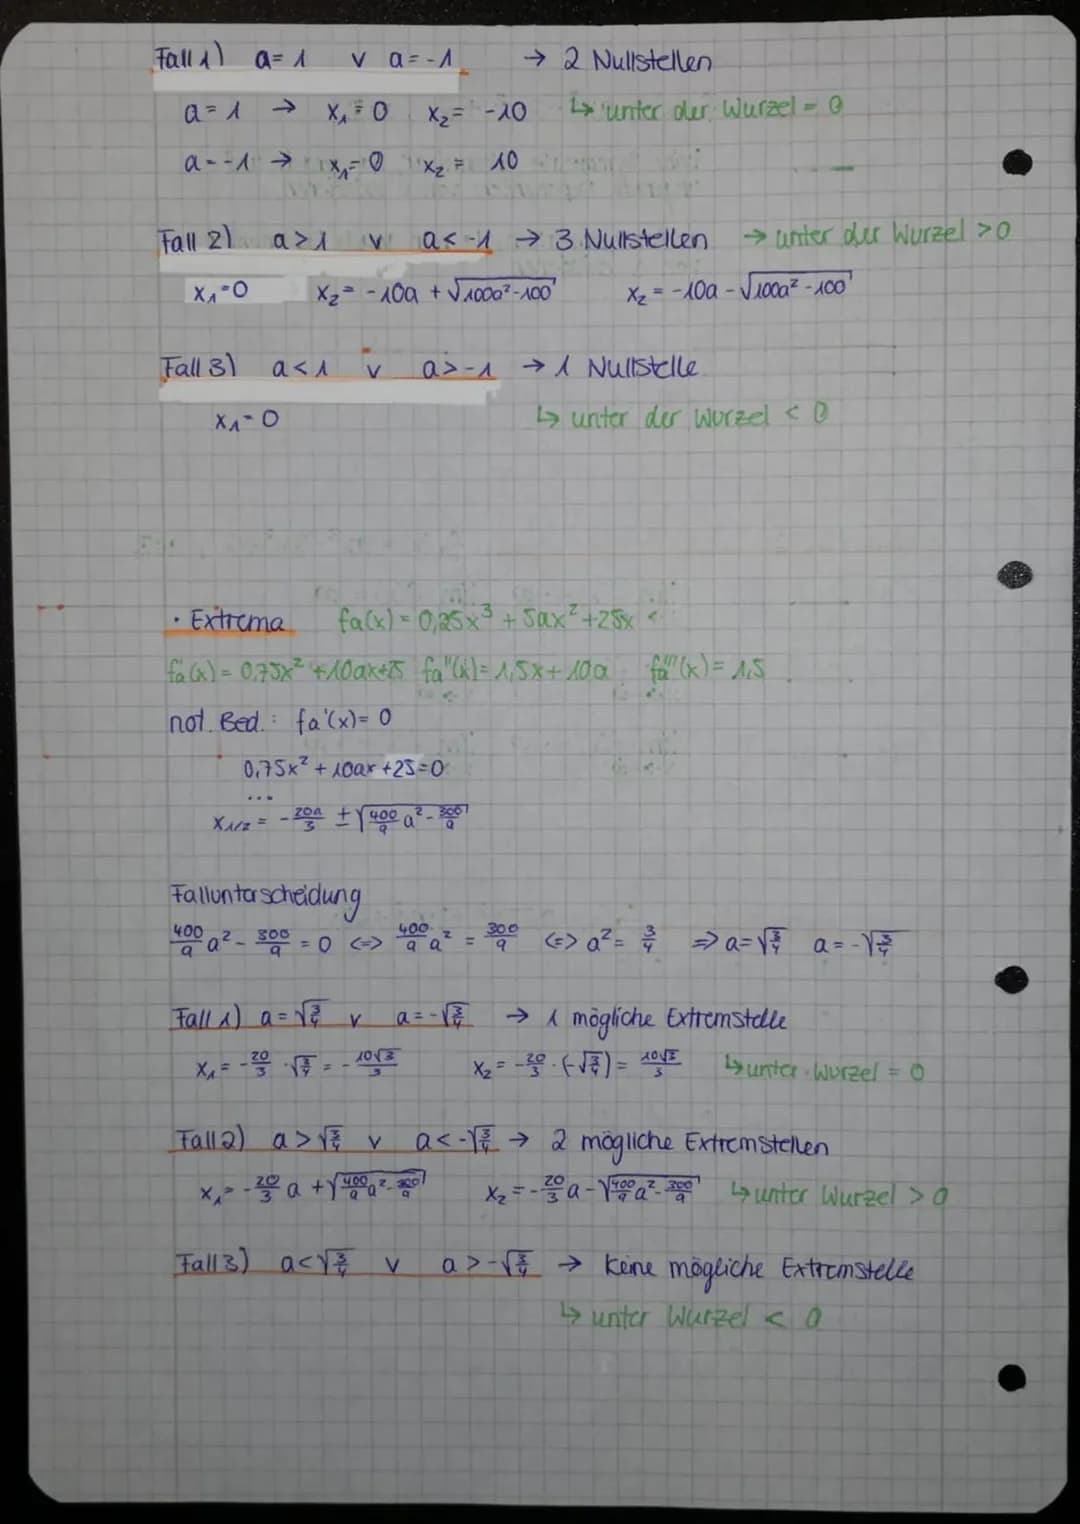 Fall 1) a = 1 v a = -1 → 2 Nullstellen
a = 1 → x₁ = 0 x₂ = -10 ↳ unter der Wurzel = 0
a = -1 → x₁ = 0 x₂ = 10
Fall 2) a > 1 v a < -1 → 3 Nullstellen → unter der Wurzel > 0
x₁ = 0 x₂ = -10a + √(100a² - 100) x₂ = -10a - √(100a² - 100)
Fall 3) a < 1 v a > -1 → 1 Nullstelle
x₁ = 0 ↳ unter der Wurzel < 0
• Extrema fa(x) = 0,25x³ + 5ax² + 25x
fa'(x) = 0,75x² + 10ax + 25 fa''(x) = 1,5x + 10a fa'''(x) = 1,5
not. Bed.: fa'(x) = 0
0,75x² + 10ax + 25 = 0
...
x₁/₂ = - 20a/3 ± √(400/9 a² - 300/9)
Fallunterscheidung
400/9 a² - 300/9 = 0 <=> 400/9 a² = 300/9 <=> a² = 3/4 => a = √(3/4) a = -√(3/4)
Fall 1) a = √(3/4) v a = -√(3/4) → 1 mögliche Extremstelle
x₁ = - 20/3 · √(3/4) = - 10√3/3 x₂ = - 20/3 · (-√(3/4)) = 10√3/3 ↳ unter Wurzel = 0
Fall 2) a > √(3/4) v a < -√(3/4) → 2 mögliche Extremstellen
x₁ = - 20/3 a + √(400/9 a² - 300/9) x₂ = - 20/3 a - √(400/9 a² - 300/9) ↳ unter Wurzel > 0
Fall 3) a < √(3/4) v a > -√(3/4) → keine mögliche Extremstelle
↳ unter Wurzel < 0